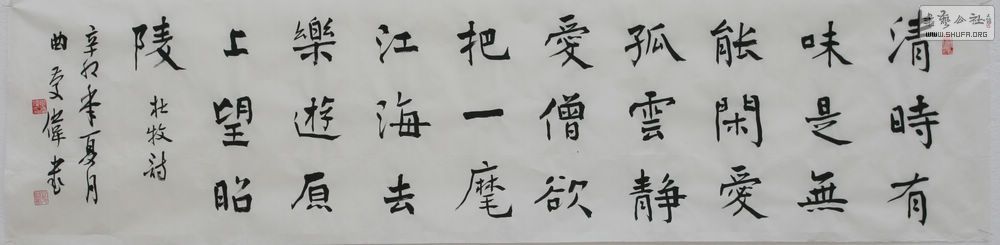 清時有
味是無
能閑愛
孤雲靜
愛僧欲
把一麾
江海去
樂遊原
上望昭
陵
杜牧詩
辛卯年夏月
曲偉書
书艺公社
WWW.SHUFA.ORG